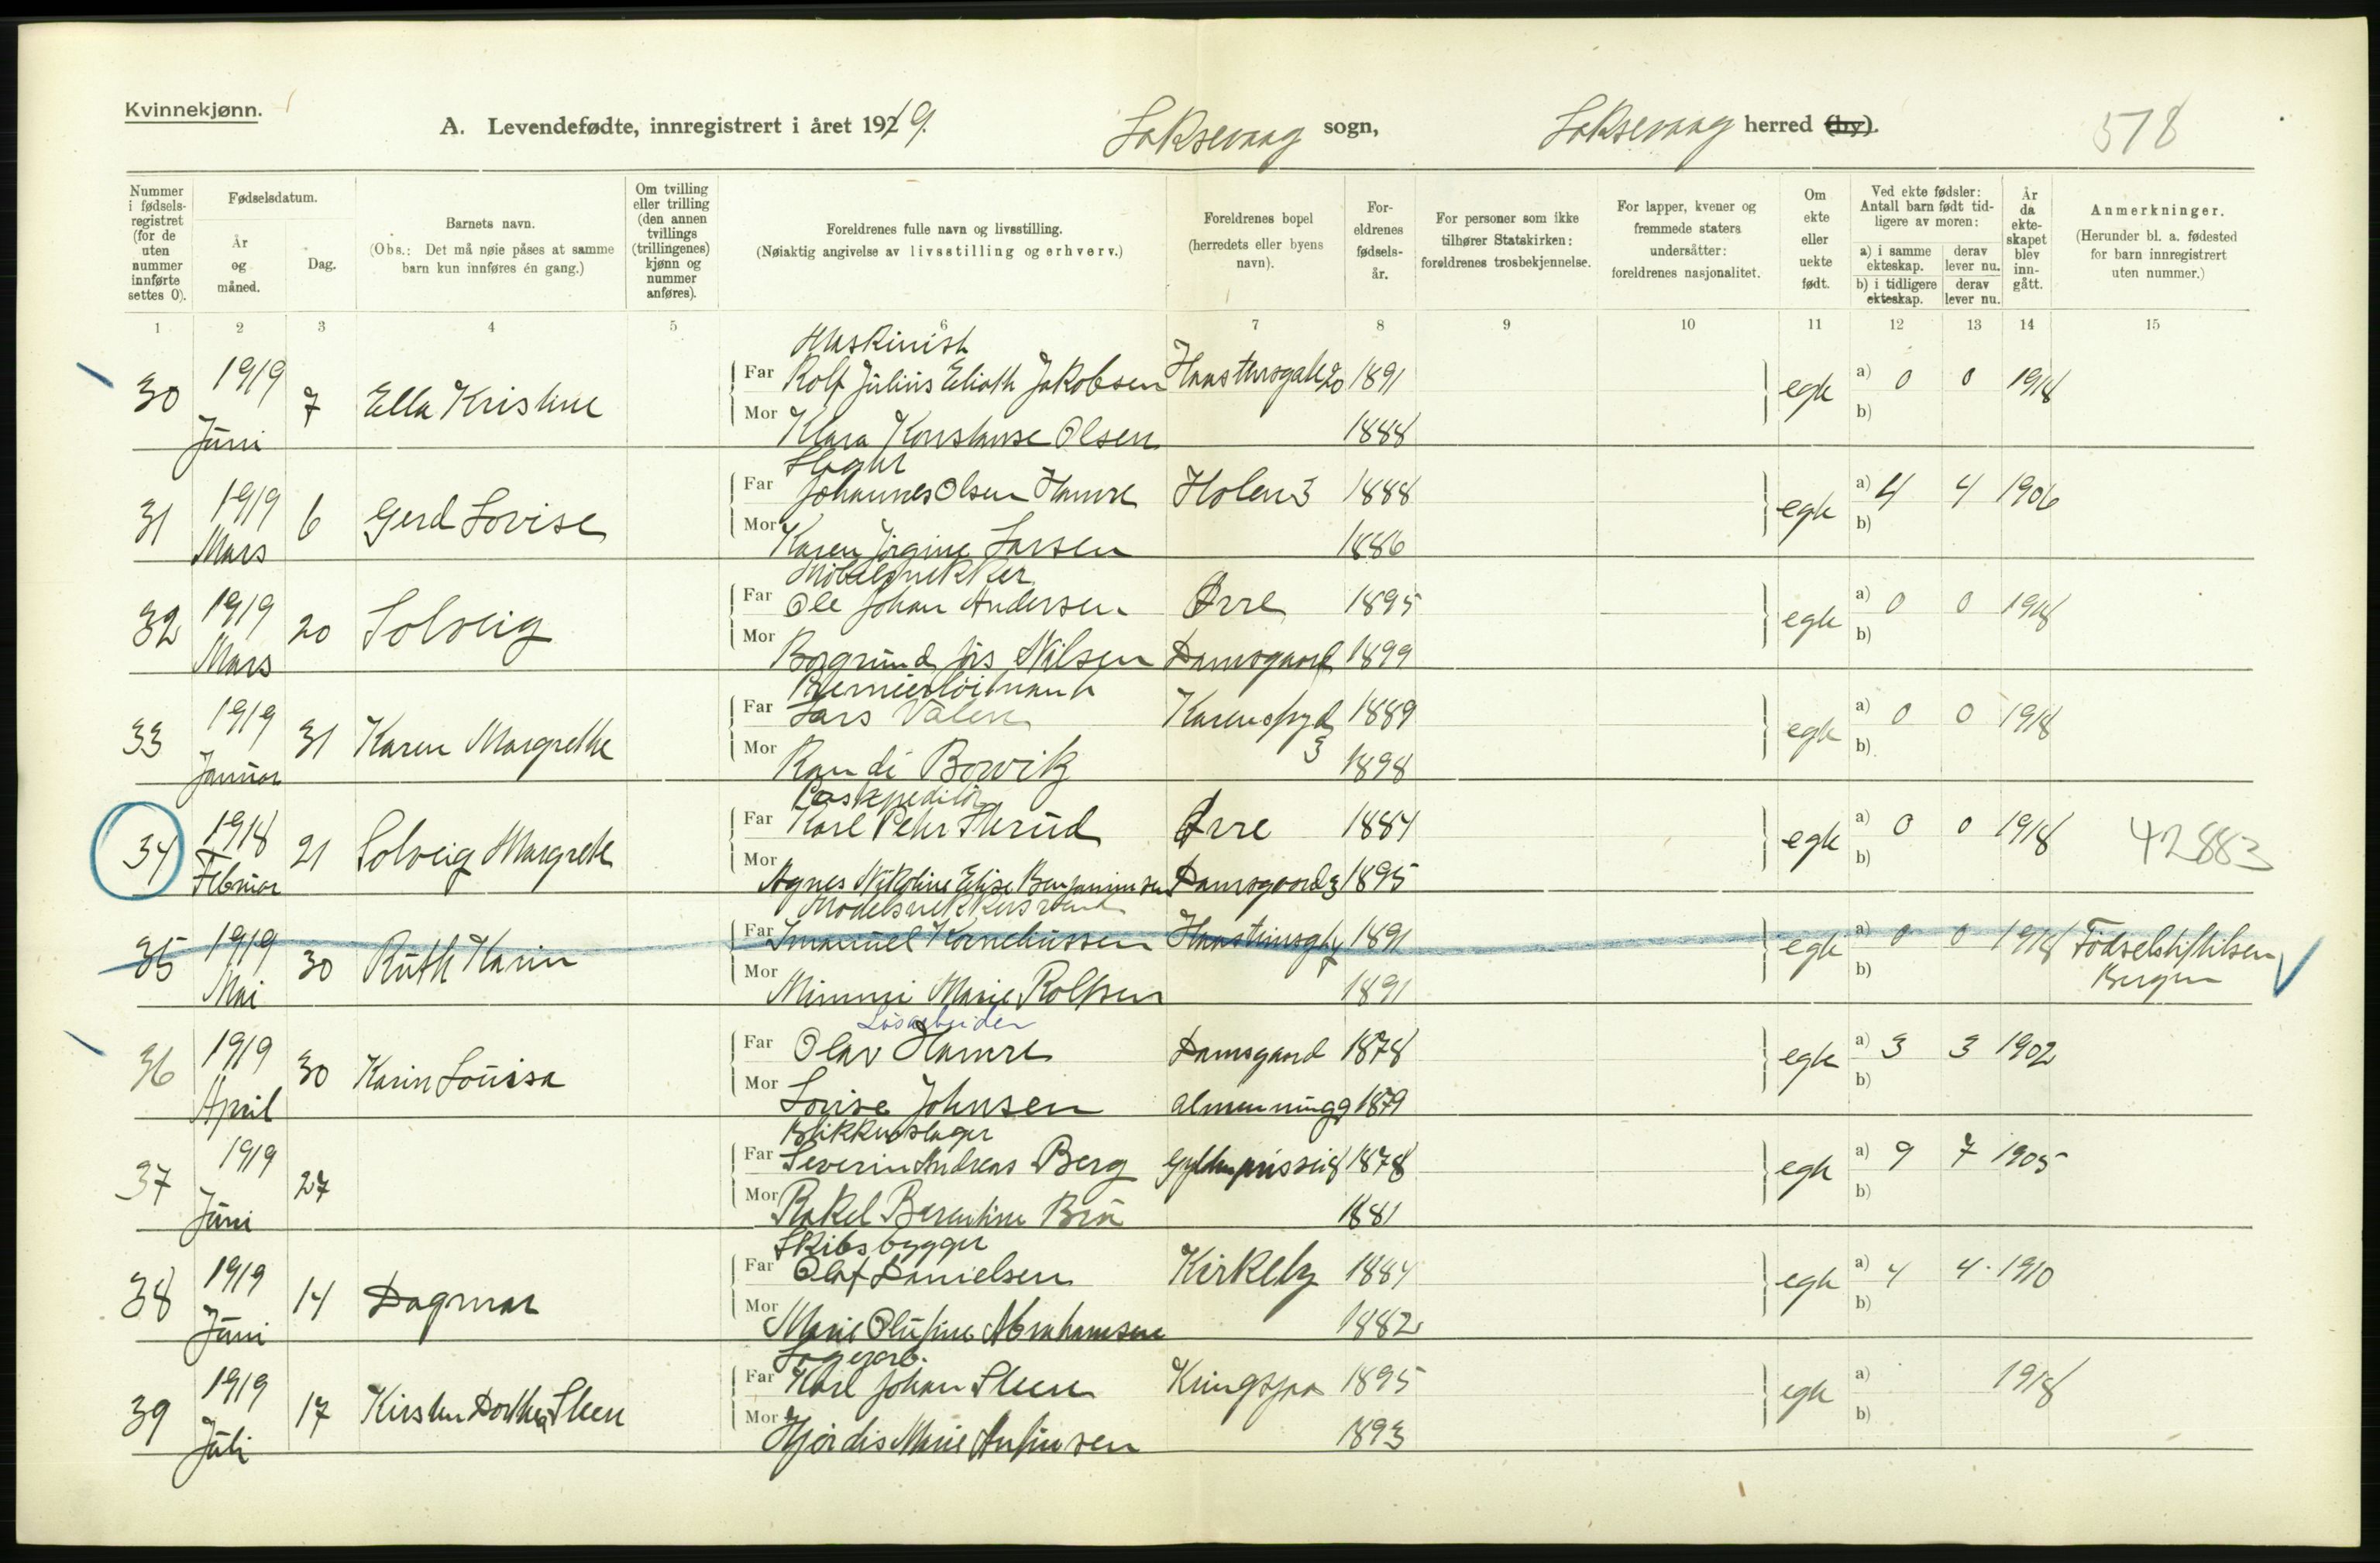 Kvinnekjønn.
A. Levendefødte, innregistrert i året 1919. Laksevaag sogn, Laksevaag herred (by). 578
Nummer i fødsels-registret (for de uten nummer innførte settes 0).
Fødselsdatum.
År og måned.
Dag.
Barnets navn.
(Obs.: Det må nøie påses at samme barn kun innføres én gang.)
Om tvilling eller trilling (den annen tvillings (trillingenes) kjønn og nummer anføres).
Foreldrenes fulle navn og livsstilling.
(Nøiaktig angivelse av livsstilling og erhverv.)
Foreldrenes bopel (herredets eller byens navn).
For-eldrenes fødsels-år.
For personer som ikke tilhører Statskirken: foreldrenes trosbekjennelse.
For lapper, kvener og fremmede staters undersåtter: foreldrenes nasjonalitet.
Om ekte eller uekte født.
Ved ekte fødsler: Antall barn født tid-ligere av moren:
a) i samme ekteskap. derav lever nu.
b) i tidligere ekteskap. derav lever nu.
År da ekte-skapet blev inn-gått.
Anmerkninger.
(Herunder bl. a. fødested for barn innregistrert uten nummer.)
1 2 3 4 5 6 7 8 9 10 11 12 13 14 15
Maskinist
30 1919 7 Ella Kristine Far Rolf Julius Eliath Jakobsen 20 1891 egte a) 0 0 1918
Juni Mor Klara Konstanse Olsen 1888 b)
Slagter
31 1919 6 Gerd Lovise Far Johannes Olsen Hamre Holen 3 1888 egte a) 4 4 1906
Mars Mor Karen Jørgine Larsen 1886 b)
Møbelsnekker
32 1919 20 Solveig Far Ole Johan Andersen Øvre 1895 egte a) 0 0 1918
Mars Mor Nilsen Damsgaard 1899 b)
Premierløitnant
33 1919 31 Karen Margrethe Far Lars Valen 1889 egte a) 0 0 1918
Januar Mor Randi Borvik 3 1898 b)
34 1918 21 Solveig Margrete Far Karl Peter Øvre 1884 egte a) 0 0 1918 42883
Februar Mor Agnes Nikoline Elise Benjaminsen Damsgaard 3 1895 b)
35 1919 30 Ruth Karin Far Imanuel Korneliussen 1891 egte a) 0 0 1918 Fødselstiftelsen
Mai Mor Mimmi Marie Rolfsen 1891 b) Bergen
Løsarbeider
36 1919 30 Karin Louisa Far Olav Hamre Damsgaard 1878 egte a) 3 3 1902
April Mor Lovise Johnsen almenning 9 1879 b)
Blikkenslager
37 1919 27 Far Severin Andreas Berg 1878 egte a) 9 7 1905
Juni Mor Rakel Berentine 1881 b)
Skibsbygger
38 1919 14 Dagmar Far Olaf Danielsen Kirkeby 1884 egte a) 4 4 1910
Juni Mor Marie Olufine Abrahamsen 1882 b)
Lagerarb.
39 1919 17 Kirsten Dorthea Steen Far Karl Johan Steen Kringsjaa 1895 egte a) 1918
Juli Mor Hjørdis Marie Anfinsen 1893 b)